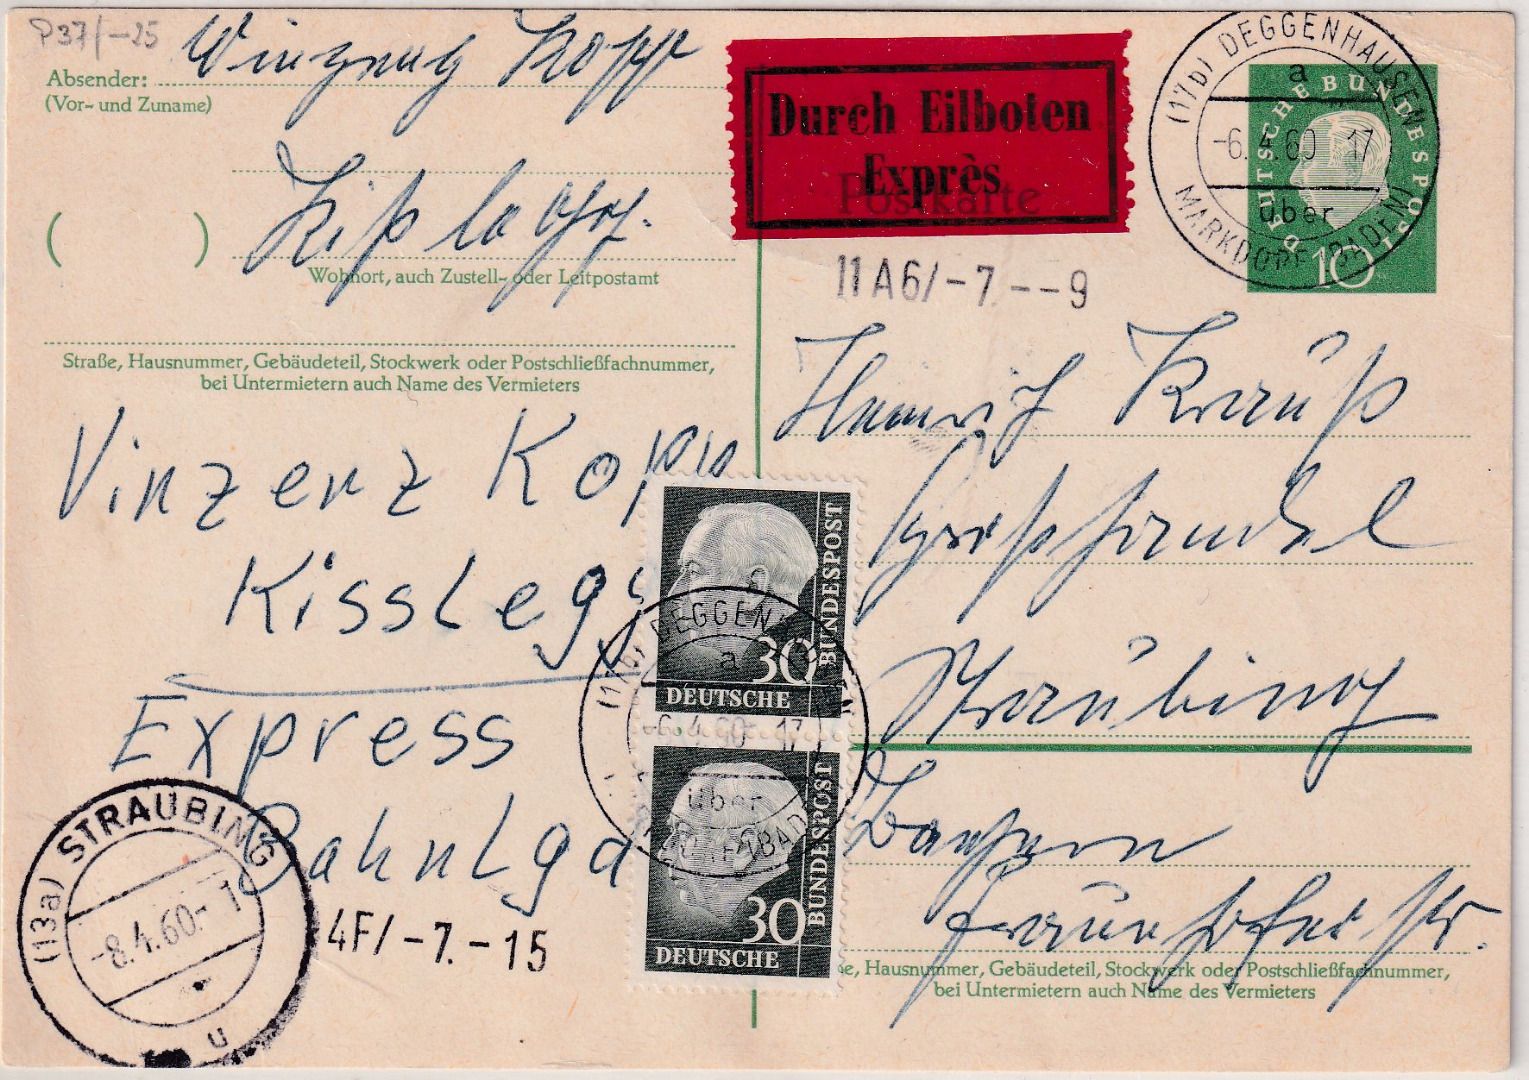 P37/-25
Absender: Vinzenz Kopp
(Vor- und Zuname)
Kißlegg.
( )
Wohnort, auch Zustell- oder Leitpostamt
Straße, Hausnummer, Gebäudeteil, Stockwerk oder Postschließfachnummer,
bei Untermietern auch Name des Vermieters
Vinzenz Kopp
Kisslegg
Express
Bahnlgd
Durch Eilboten
Exprès
Postkarte
(17b) DEGGENHAUSEN
a
-6.4.60 17
über
MARKDORF (BADEN)
DEUTSCHE BUNDESPOST
10
11A6/-7.--9
Heinrich Krauß
Großhandel
Straubing
Bayern
Fraunhofer str.
ße, Hausnummer, Gebäudeteil, Stockwerk oder Postschließfachnummer,
bei Untermietern auch Name des Vermieters
30
DEUTSCHE
BUNDESPOST
30
DEUTSCHE
BUNDESPOST
DEGGENH
a
-6.4.60 17
über
(BAD
(13a) STRAUBING
-8.4.60.-1
u
4F/-7.-15